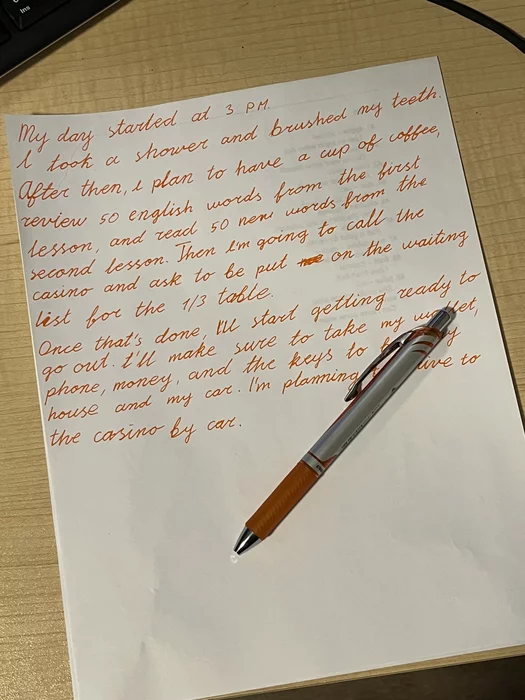 Ins
My day started at 3 PM.
I took a shower and brushed my teeth.
After then, i plan to have a cup of coffee,
review 50 english words from the first
lesson, and read 50 new words from the
second lesson. Then I'm going to call the
casino and ask to be put on the waiting
list for the 1/3 table.
Once that's done, I'll start getting ready to
go out. I'll make sure to take my
phone, money, and the keys to
house and my car. I'm planning
the casino by car.